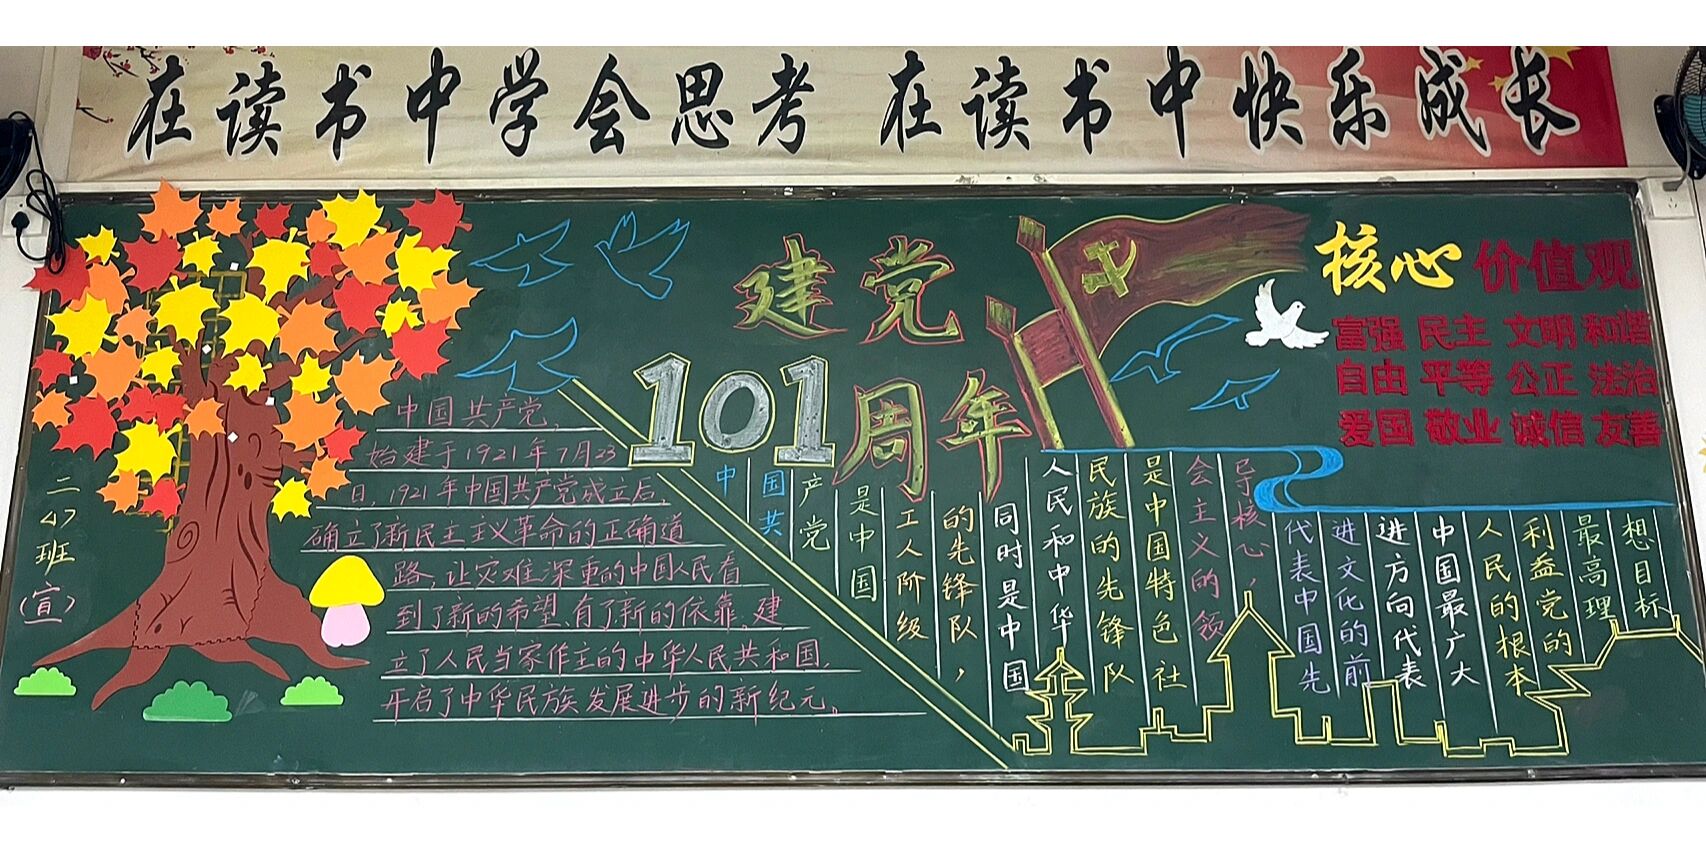 在读书中学会思考 在读书中快乐成长
建党
101周年
核心价值观
富强 民主 文明 和谐
自由 平等 公正 法治
爱国 敬业 诚信 友善
中国共产党,
始建于1921年7月23
日,1921年中国共产党成立后,
确立了新民主主义革命的正确道
路,让灾难深重的中国人民看
到了新的希望、有了新的依靠。建
立了人民当家作主的中华人民共和国,
开启了中华民族发展进步的新纪元。
中
国共
产党
是中国
工人阶级
的先锋队,
同时是中国
人民和中华
民族的先锋队
是中国特色社
会主义的领
导核心,
代表中国先
进文化的前
进方向代表
中国最广大
人民的根本
利益党的
最高理
想目标
二
班
(宣)